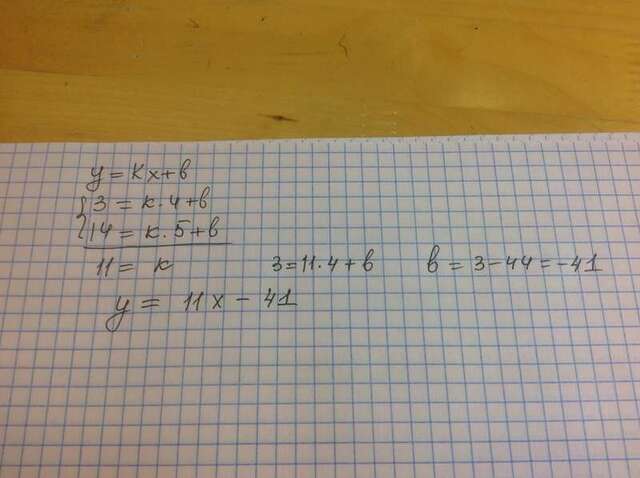 y = кx + в
3 = к · 4 + в
14 = к · 5 + в
11 = к   3 = 11 · 4 + в   в = 3 - 44 = -41
y = 11x - 41